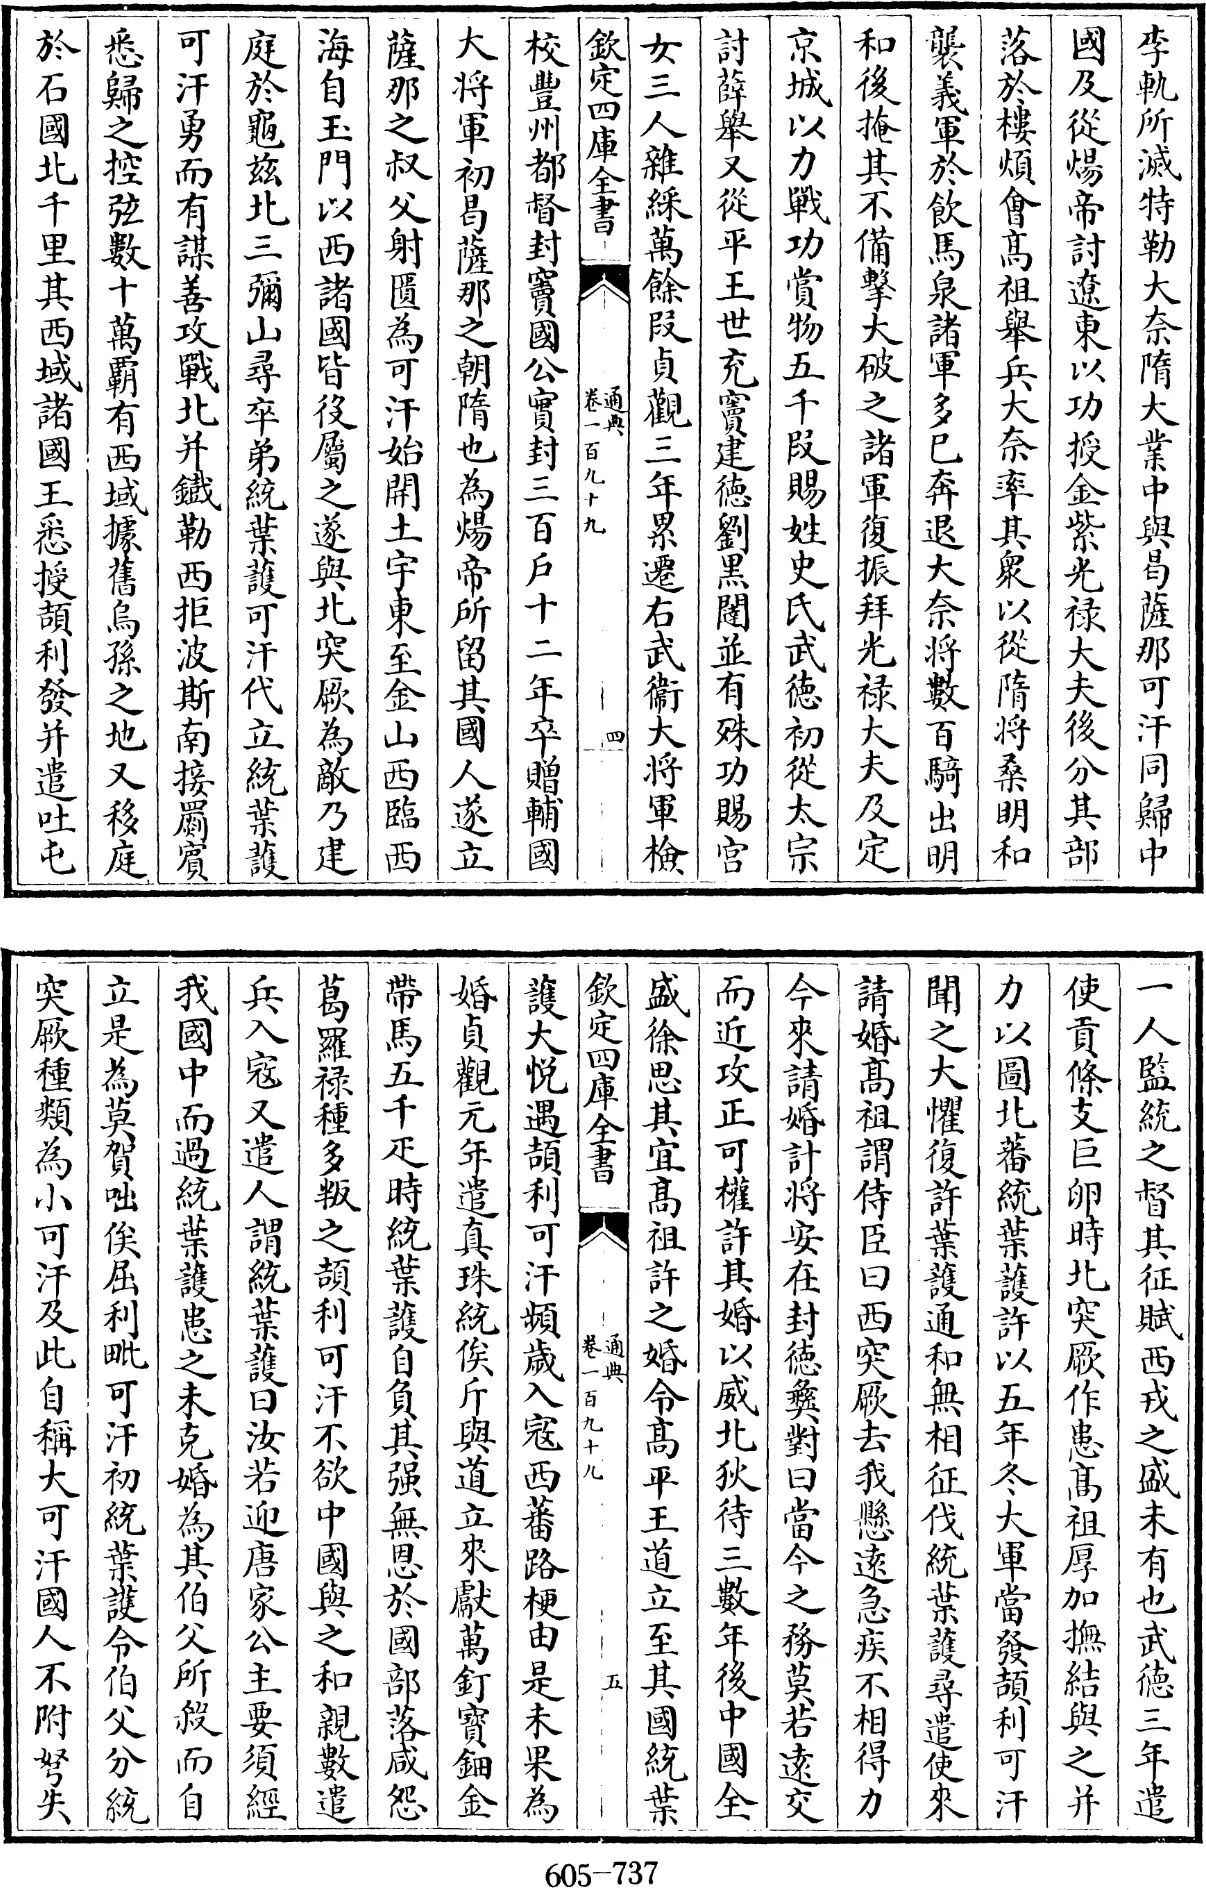 李軌所滅特勒大奈隋大業中與曷薩那可汗同歸中
國及從煬帝討遼東以功授金紫光禄大夫後分其部
落於樓煩會髙祖舉兵大奈率其衆以從隋将桑明和
襲義軍於飲馬泉諸軍多已奔退大奈将數百騎出明
和後掩其不備擊大破之諸軍復振拜光禄大夫及定
京城以力戰功賞物五千段賜姓史氏武徳初從太宗
討薛舉又從平王世充竇建徳劉黒闥並有殊功賜宫
女三人雜綵萬餘段貞觀三年累遷右武衞大将軍檢
欽定四庫全書
通典
卷一百九十九
四
校豐州都督封竇國公實封三百戶十二年卒贈輔國
大将軍初曷薩那之朝隋也為煬帝所留其國人遂立
薩那之叔父射匱為可汗始開土宇東至金山西臨西
海自玉門以西諸國皆役屬之遂與北突厥為敵乃建
庭於龜兹北三彌山尋卒弟統葉護可汗代立統葉護
可汗勇而有謀善攻戰北并鐵勒西拒波斯南接罽賓
悉歸之控弦數十萬霸有西域據舊烏孫之地又移庭
於石國北千里其西域諸國王悉授頡利發并遣吐屯
一人監統之督其征賦西戎之盛未有也武徳三年遣
使貢條支巨卵時北突厥作患髙祖厚加撫結與之并
力以圖北蕃統葉護許以五年冬大軍當發頡利可汗
聞之大懼復許葉護通和無相征伐統葉護尋遣使來
請婚髙祖謂侍臣曰西突厥去我懸逺急疾不相得力
今來請婚計将安在封徳彝對曰當今之務莫若逺交
而近攻正可權許其婚以威北狄待三數年後中國全
盛徐思其宜髙祖許之婚令髙平王道立至其國統葉
欽定四庫全書
通典
卷一百九十九
五
護大悦遇頡利可汗頻歲入寇西蕃路梗由是未果為
婚貞觀元年遣真珠統俟斤與道立來獻萬釘寶鈿金
帶馬五千疋時統葉護自負其强無恩於國部落咸怨
葛羅禄種多叛之頡利可汗不欲中國與之和親數遣
兵入寇又遣人謂統葉護曰汝若迎唐家公主要須經
我國中而過統葉護患之未克婚為其伯父所殺而自
立是為莫賀咄俟屈利毗可汗初統葉護令伯父分統
突厥種類為小可汗及此自稱大可汗國人不附弩失
605-737